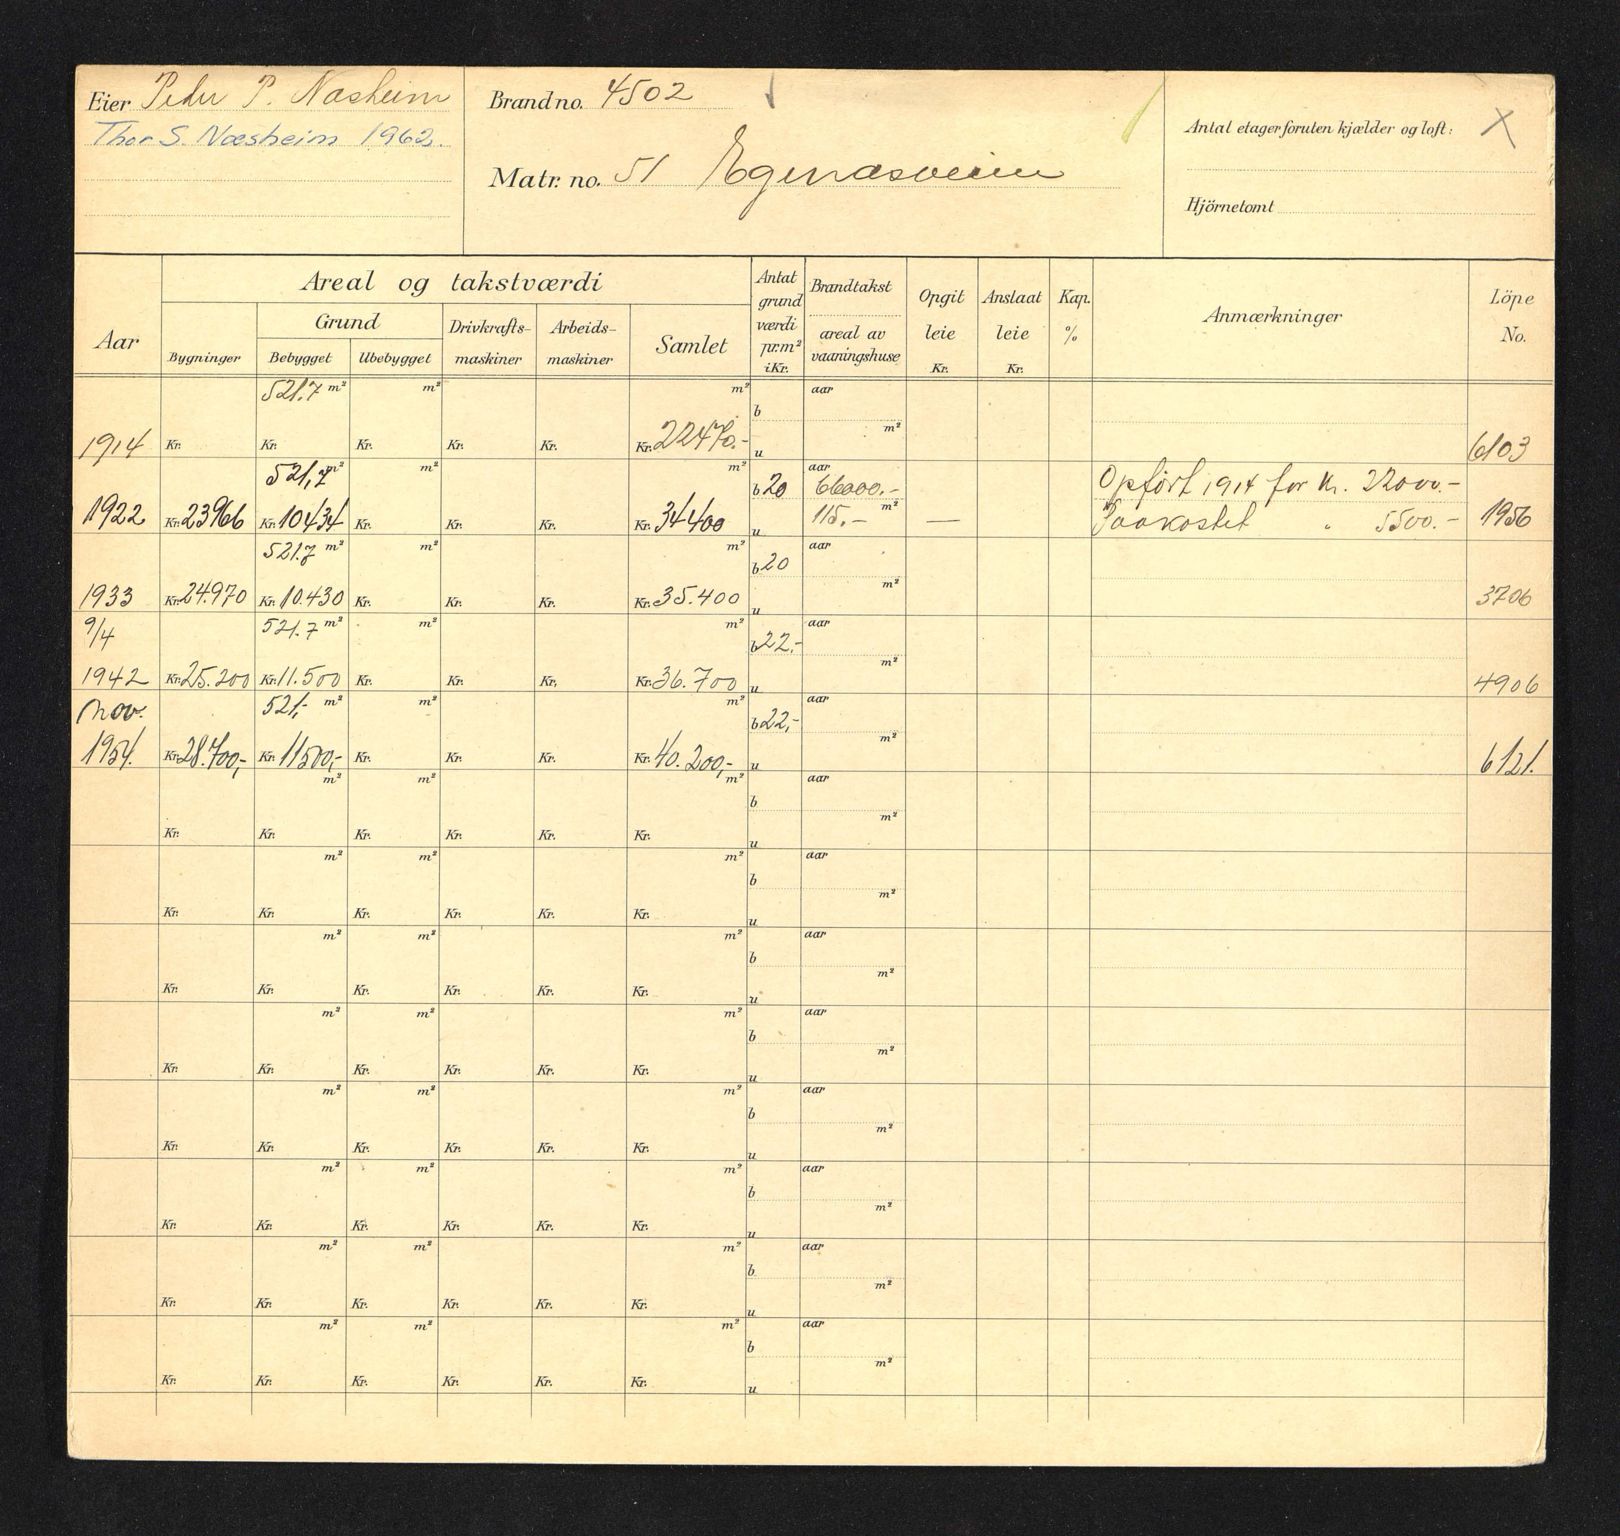 Eier Peder P. Næsheim
Thor S. Næsheim 1962.
Brandno. 4502
Matr. no. 51 Egenæsveien
Antal etager foruten kjælder og loft: X
Hjörnetomt
Aar
Areal og takstværdi
Bygninger
Grund
Bebygget Ubebygget
Drivkrafts-
maskiner
Arbeids-
maskiner
Samlet
Antat
grund
værdi
pr.m²
i Kr.
Brandtakst
areal av
vaaningshuse
Opgit
leie
Kr.
Anslaat
leie
Kr.
Kap.
%
Anmærkninger
Löpe
No.
521.7 m² m² m² b aar
1914 Kr. Kr. Kr. Kr. Kr. Kr. 22470.- u m² 6103
521,7 m² m² m² b 20 aar 66000.- Opført 1914 for kr. 22000.-
1922 Kr. 23966 Kr. 10434 Kr. Kr. Kr. Kr. 34400 u 115.- m² — Paakostet " 5500.- 1956
521.7 m² m² m² b 20 aar
1933 Kr. 24.970 Kr. 10.430 Kr. Kr. Kr. Kr. 35.400 u m² 3706
9/4 521.7 m² m² m² b 22.- aar
1942 Kr. 25.200 Kr. 11.500 Kr. Kr. Kr. Kr. 36.700 u m² 4906
Nov. 521,- m² m² m² b 22,- aar
1954. Kr. 28.700,- Kr. 11500,- Kr. Kr. Kr. Kr. 40.200,- u m² 6121.
m² m² m² b aar
Kr. Kr. Kr. Kr. Kr. Kr. u m²
m² m² m² b aar
Kr. Kr. Kr. Kr. Kr. Kr. u m²
m² m² m² b aar
Kr. Kr. Kr. Kr. Kr. Kr. u m²
m² m² m² b aar
Kr. Kr. Kr. Kr. Kr. Kr. u m²
m² m² m² b aar
Kr. Kr. Kr. Kr. Kr. Kr. u m²
m² m² m² b aar
Kr. Kr. Kr. Kr. Kr. Kr. u m²
m² m² m² b aar
Kr. Kr. Kr. Kr. Kr. Kr. u m²
m² m² m² b aar
Kr. Kr. Kr. Kr. Kr. Kr. u m²